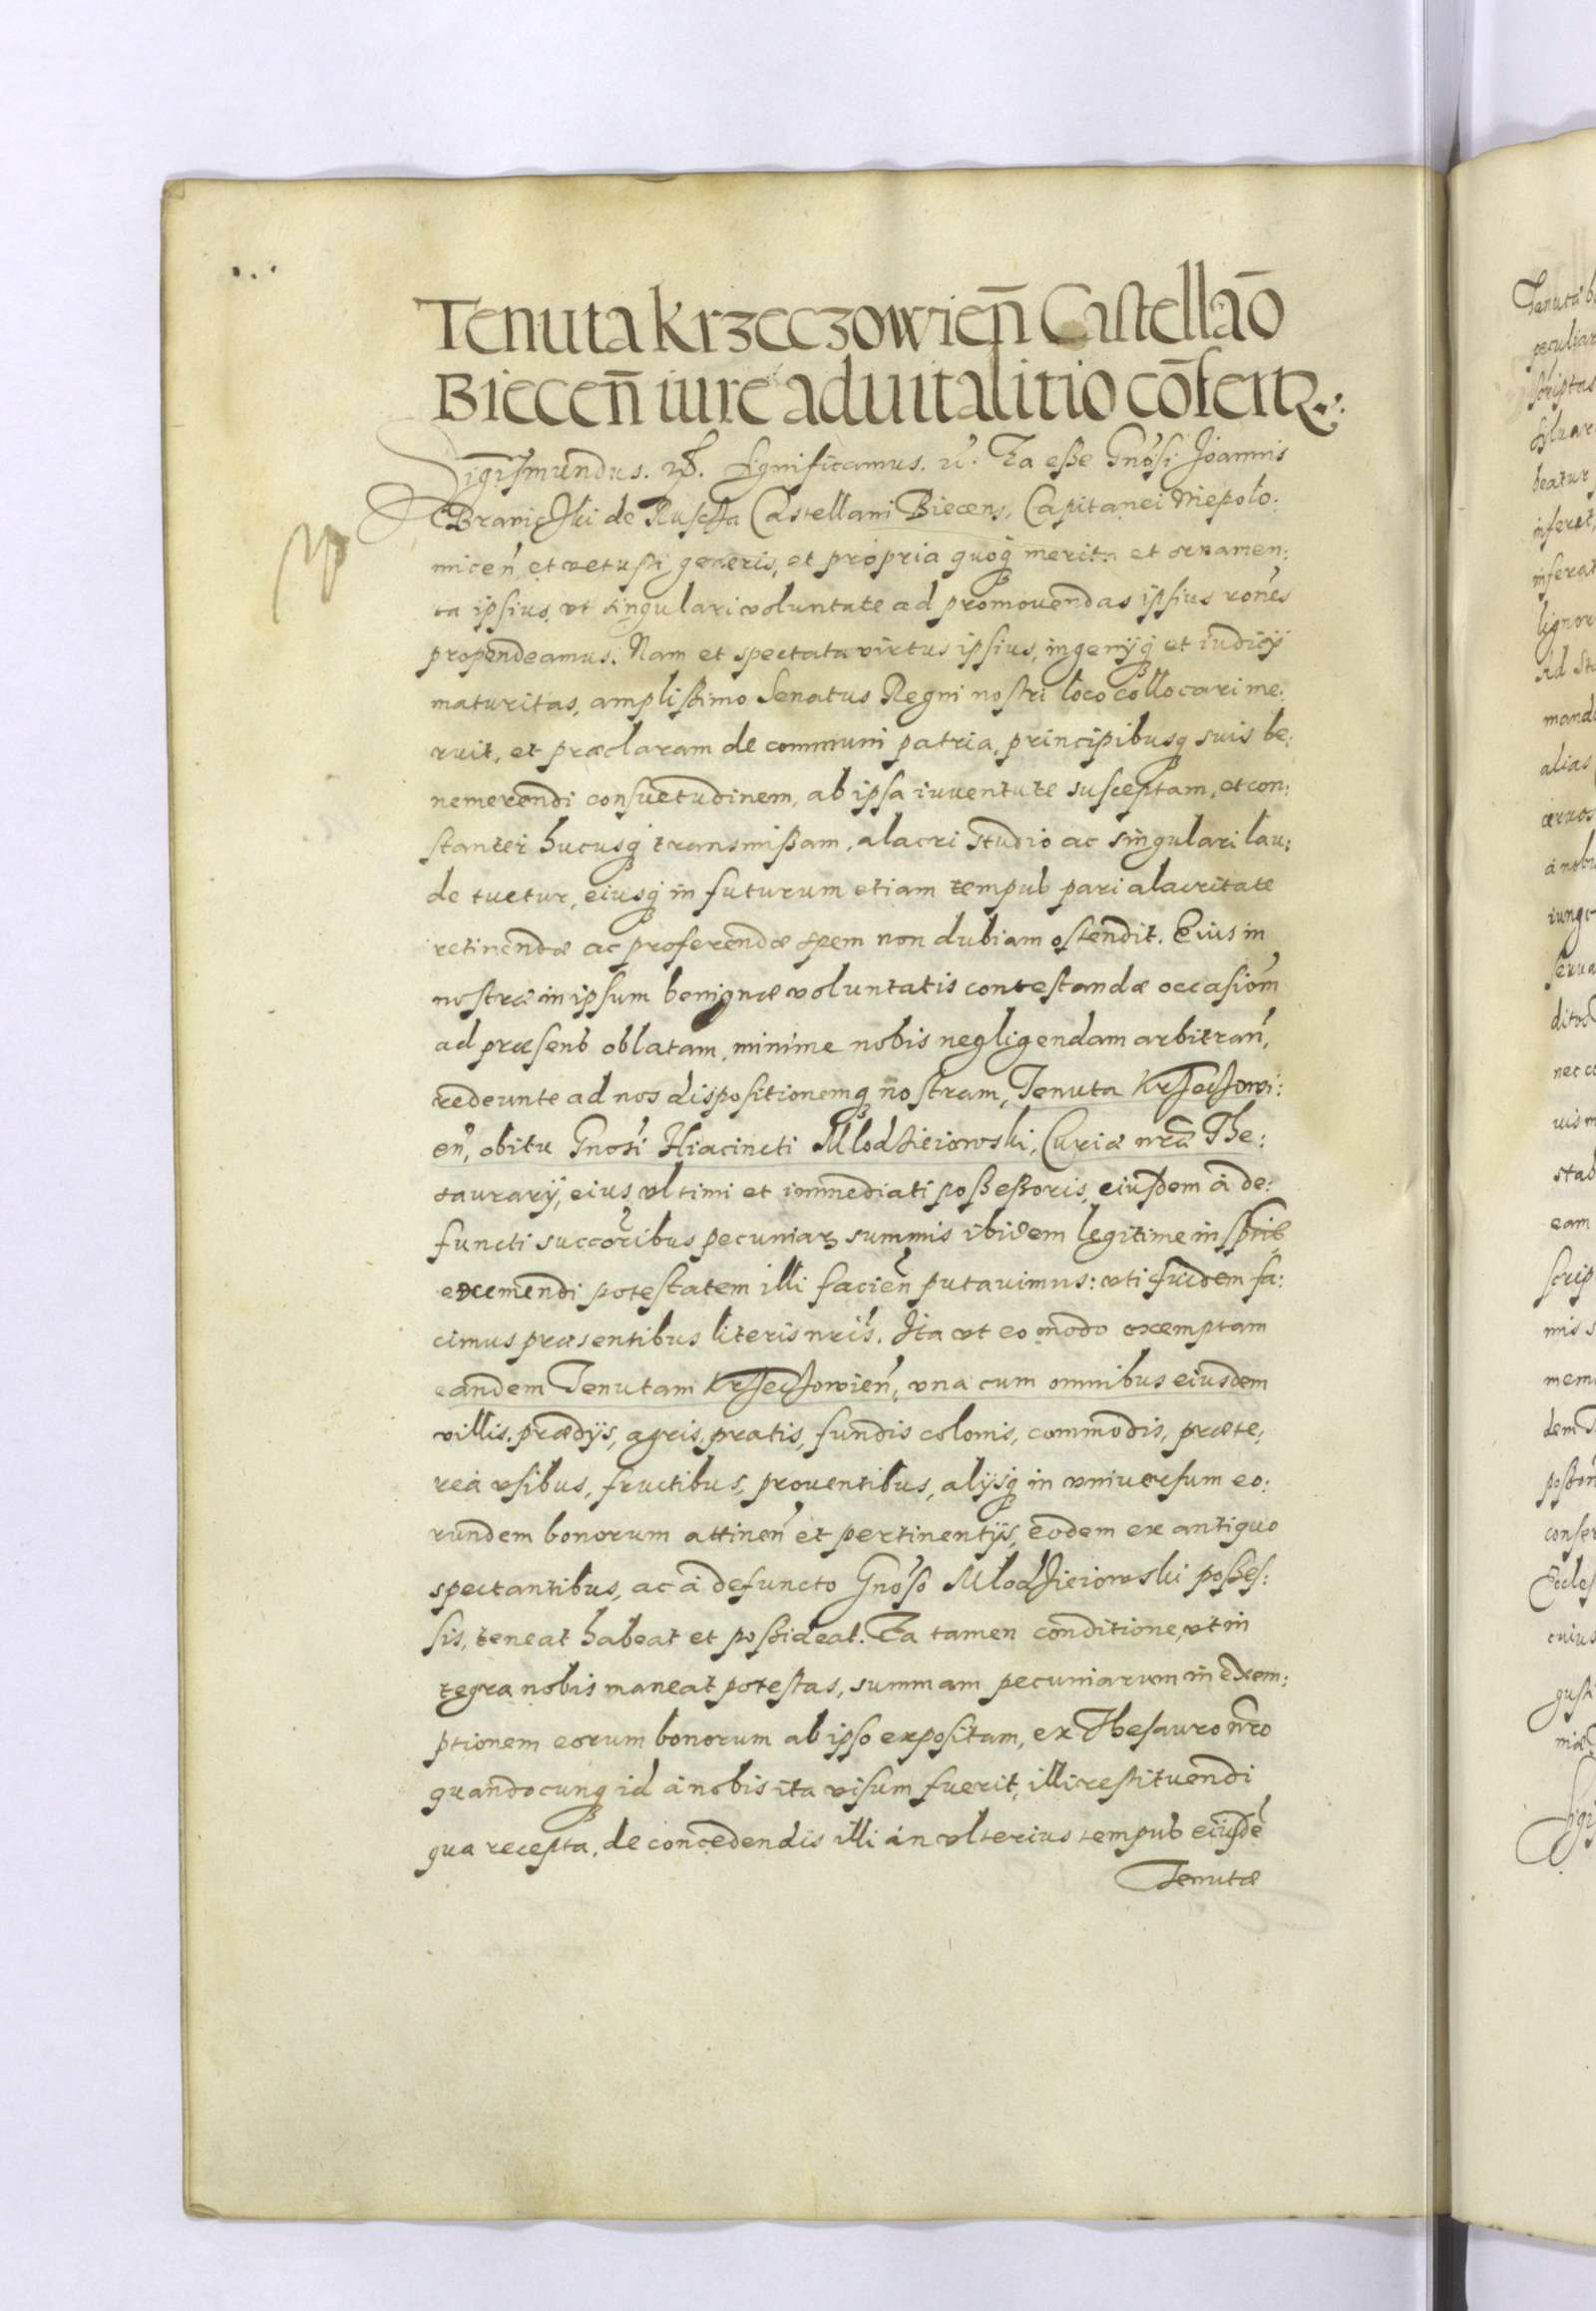 Tenuta Krzeczowien̄ Castellaō
Biecen̄ iure aduitalitio cōfertꝛ
Sigismundus. Significamus. Ea esse Gnosi Joannis
Braniczki de Ruscza Castellani Biecens, Capitanei Niepolo:
micen̄ et vetusti generis, et propria quoq merita et ornamen:
ta ipsius, vt singulari voluntate ad promouendas ipsius rones
propendeamus. Nam et spectata virtus ipsius, ingenijq et iudicij
maturitas, amplissimo Senatus Regni nostri loco collocari me:
ruit, et præclaram de communi patria, principibusq suis be:
nemerendi consuetudinem, ab ipsa iuuentute susceptam, et con:
stanter hucusq transmissam, alacri studio ac singulari lau:
de tuetur, eiusq in futurum etiam tempus pari alacritate
retinendæ ac proferendæ spem non dubiam ostendit. Eius in
nostræ in ipsum benignæ voluntatis contestandæ occasiom
ad præsens oblatam, minime nobis negligendam arbitran,
redeunte ad nos dispositionemq nostram, Tenuta Krzeczowi:
en, obitu Gnosi Hiacincti Mlodzieiowski, Curiæ nræ The:
saurarij, eius vltimi et immediati possessoris, eiusdem à de:
functi succoribus pecuniarꝝ summis ibidem legitime insptis
eximendi potestatem illi facien putauimus: vti quidem fa:
cimus præsentibus literis nris. Ita vt eo modo exemptam
eandem Tenutam Krzeczowien, vna cum omnibus eiusdem
villis, prædijs, agris, pratis, fundis colonis, commodis, præte:
rea vsibus, fructibus, prouentibus, alijsq in vniuersum eo:
rundem bonorum attinen et pertinentijs, eodem ex antiquo
spectantibus, ac à defuncto Gnoso Mlodzieiowski posses:
sis, teneat habeat et possideat. Ea tamen conditione, vt in
tegra nobis maneat potestas, summam pecuniarum in exem:
ptionem eorum bonorum ab ipso expositam, ex Thesauro nro
quandocunq id à nobis ita visum fuerit, illi restituendi
qua recepta, de concedendis illi in vlterius tempus eiusdē
Tenutæ